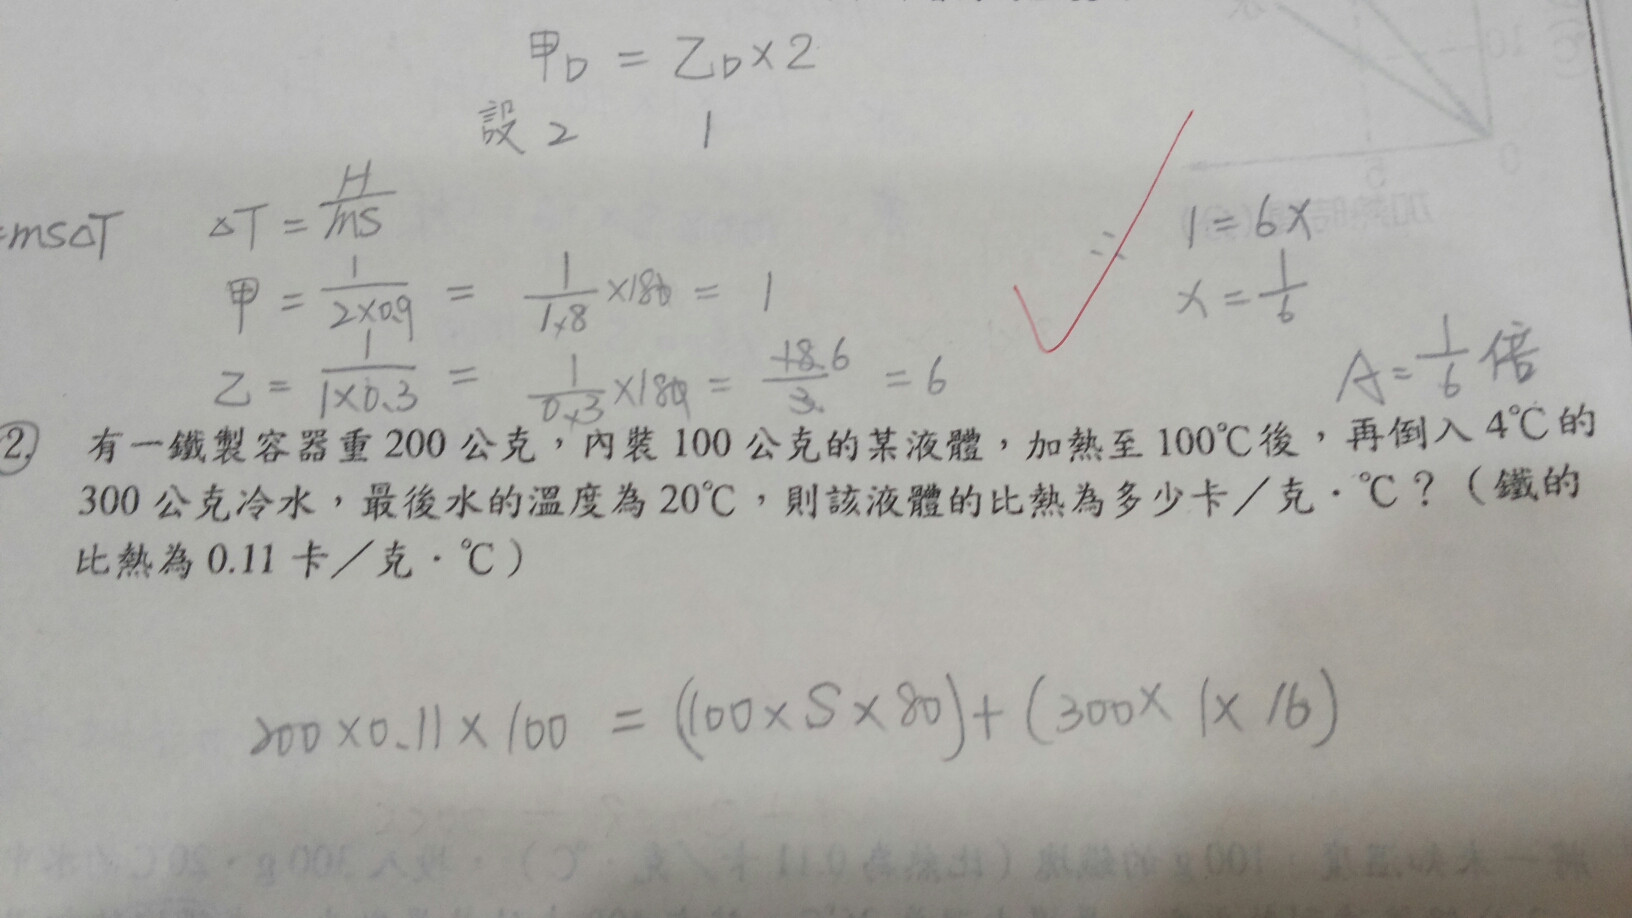 甲D = 乙D×2
設 2 1
=msΔT ΔT = H/ms
甲 = 1/2×0.9 = 1/1.8 ×180 = 1
乙 = 1/1×0.3 = 1/0.3 ×180 = 18.6/3. = 6
∵ 1=6X
X = 1/6
A = 1/6 倍
2. 有一鐵製容器重 200 公克，內裝 100 公克的某液體，加熱至 100℃後，再倒入 4℃的
300 公克冷水，最後水的溫度為 20℃，則該液體的比熱為多少卡／克．℃？（鐵的
比熱為 0.11 卡／克．℃）
200×0.11×100 = (100×S×80)+(300×1×16)